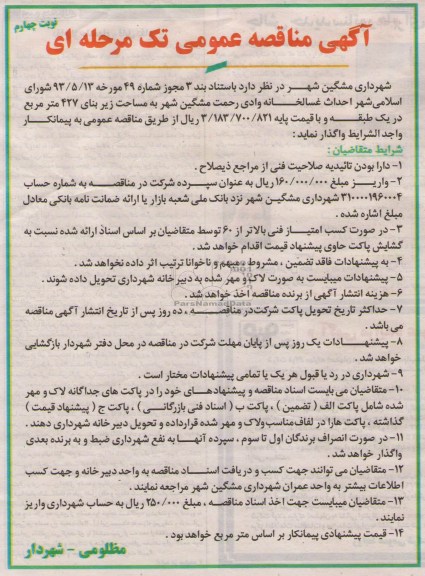 نوبت چهارم
آگهی مناقصه عمومی تک مرحله ای
شهرداری مشگین شهر در نظر دارد باستناد بند ۳ مجوز شماره ۴۹ مورخه ۹۳/۵/۱۳ شورای
اسلامی‌شهر احداث غسالخانه وادی رحمت مشگین شهر به مساحت زیر بنای ۴۲۷ متر مربع
در یک طبقه و با قیمت پایه ۳/۱۸۳/۷۰۰/۸۲۱ ریال از طریق مناقصه عمومی به پیمانکار
واجد الشرایط واگذار نماید :
شرایط متقاضیان :
۱- دارا بودن تائیدیه صلاحیت فنی از مراجع ذیصلاح .
۲- واریز مبلغ ۱۶۰/۰۰۰/۰۰۰ ریال به عنوان سپرده شرکت در مناقصه به شماره حساب
۳۱۰۰۰۰۱۹۶۰۰۰۴ شهرداری مشگین شهر نزد بانک ملی شعبه بازار یا ارائه ضمانت نامه بانکی معادل
مبلغ اشاره شده .
۳- در صورت کسب امتیاز فنی بالاتر از ۶۰ توسط متقاضیان بر اساس اسناد ارائه شده نسبت به
گشایش پاکت حاوی پیشنهاد قیمت اقدام خواهد شد .
۴- به پیشنهادات فاقد تضمین ، مشروط ، مبهم و ناخوانا ترتیب اثر داده نخواهد شد .
۵- پیشنهادات میبایست به صورت لاک و مهر شده به دبیرخانه شهرداری تحویل داده شوند .
۶- هزینه انتشار آگهی از برنده مناقصه اخذ خواهد شد .
۷- حداکثر تاریخ تحویل پاکت شرکت در مناقصه ، ده روز پس از تاریخ انتشار آگهی مناقصه
می باشد .
۸- پیشنهادات یک روز پس از پایان مهلت شرکت در مناقصه در محل دفتر شهردار بازگشایی
خواهد شد .
۹- شهرداری در رد یا قبول هر یک یا تمامی پیشنهادات مختار است .
۱۰- متقاضیان می بایست اسناد مناقصه و پیشنهادهای خود را در پاکت های جداگانه لاک و مهر
شده شامل پاکت الف ( تضمین ) ، پاکت ب ( اسناد فنی بازرگانی ) ، پاکت ج ( پیشنهاد قیمت )
گذاشته ، پاکت هارا در لفاف مناسب ولاک و مهر شده قرارداده و تحویل دبیر خانه شهرداری دهند .
۱۱- در صورت انصراف برندگان اول تا سوم ، سپرده آنها به نفع شهرداری ضبط و به برنده بعدی
واگذار خواهد شد .
۱۲- متقاضیان می توانند جهت کسب و دریافت اسناد مناقصه به واحد دبیرخانه و جهت کسب
اطلاعات بیشتر به واحد عمران شهرداری مشگین شهر مراجعه نمایند .
۱۳- متقاضیان میبایست جهت اخذ اسناد مناقصه ، مبلغ ۲۵۰/۰۰۰ ریال به حساب شهرداری واریز
نمایند .
۱۴- قیمت پیشنهادی پیمانکار بر اساس متر مربع خواهد بود .
مظلومی - شهردار